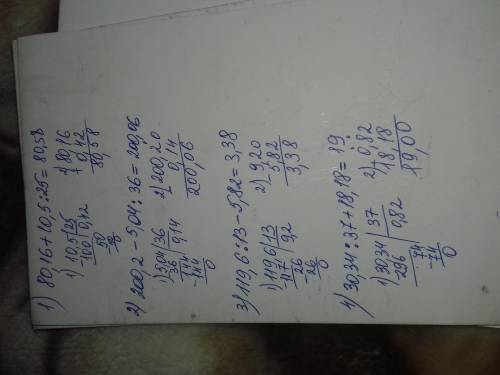 1) 80,16 + 10,5 : 25 = 80,58
1) 10,5 | 25 2) 80,16
100 0,42 + 0,42
50 80,58
2) 200,2 - 5,04 : 36 = 200,06
1) 5,04 | 36 2) 200,20
36 0,14 0,14
144 200,06
-144
0
3) 119,6 : 13 - 5,82 = 3,38
1) 119,6 | 13 2) 9,20
117 9,2 5,82
26 3,38
-26
0
4) 30,34 : 37 + 18,18 = 19
1) 30,34 | 37 2) 0,82
296 0,82 + 18,18
74 19,00
-74
0